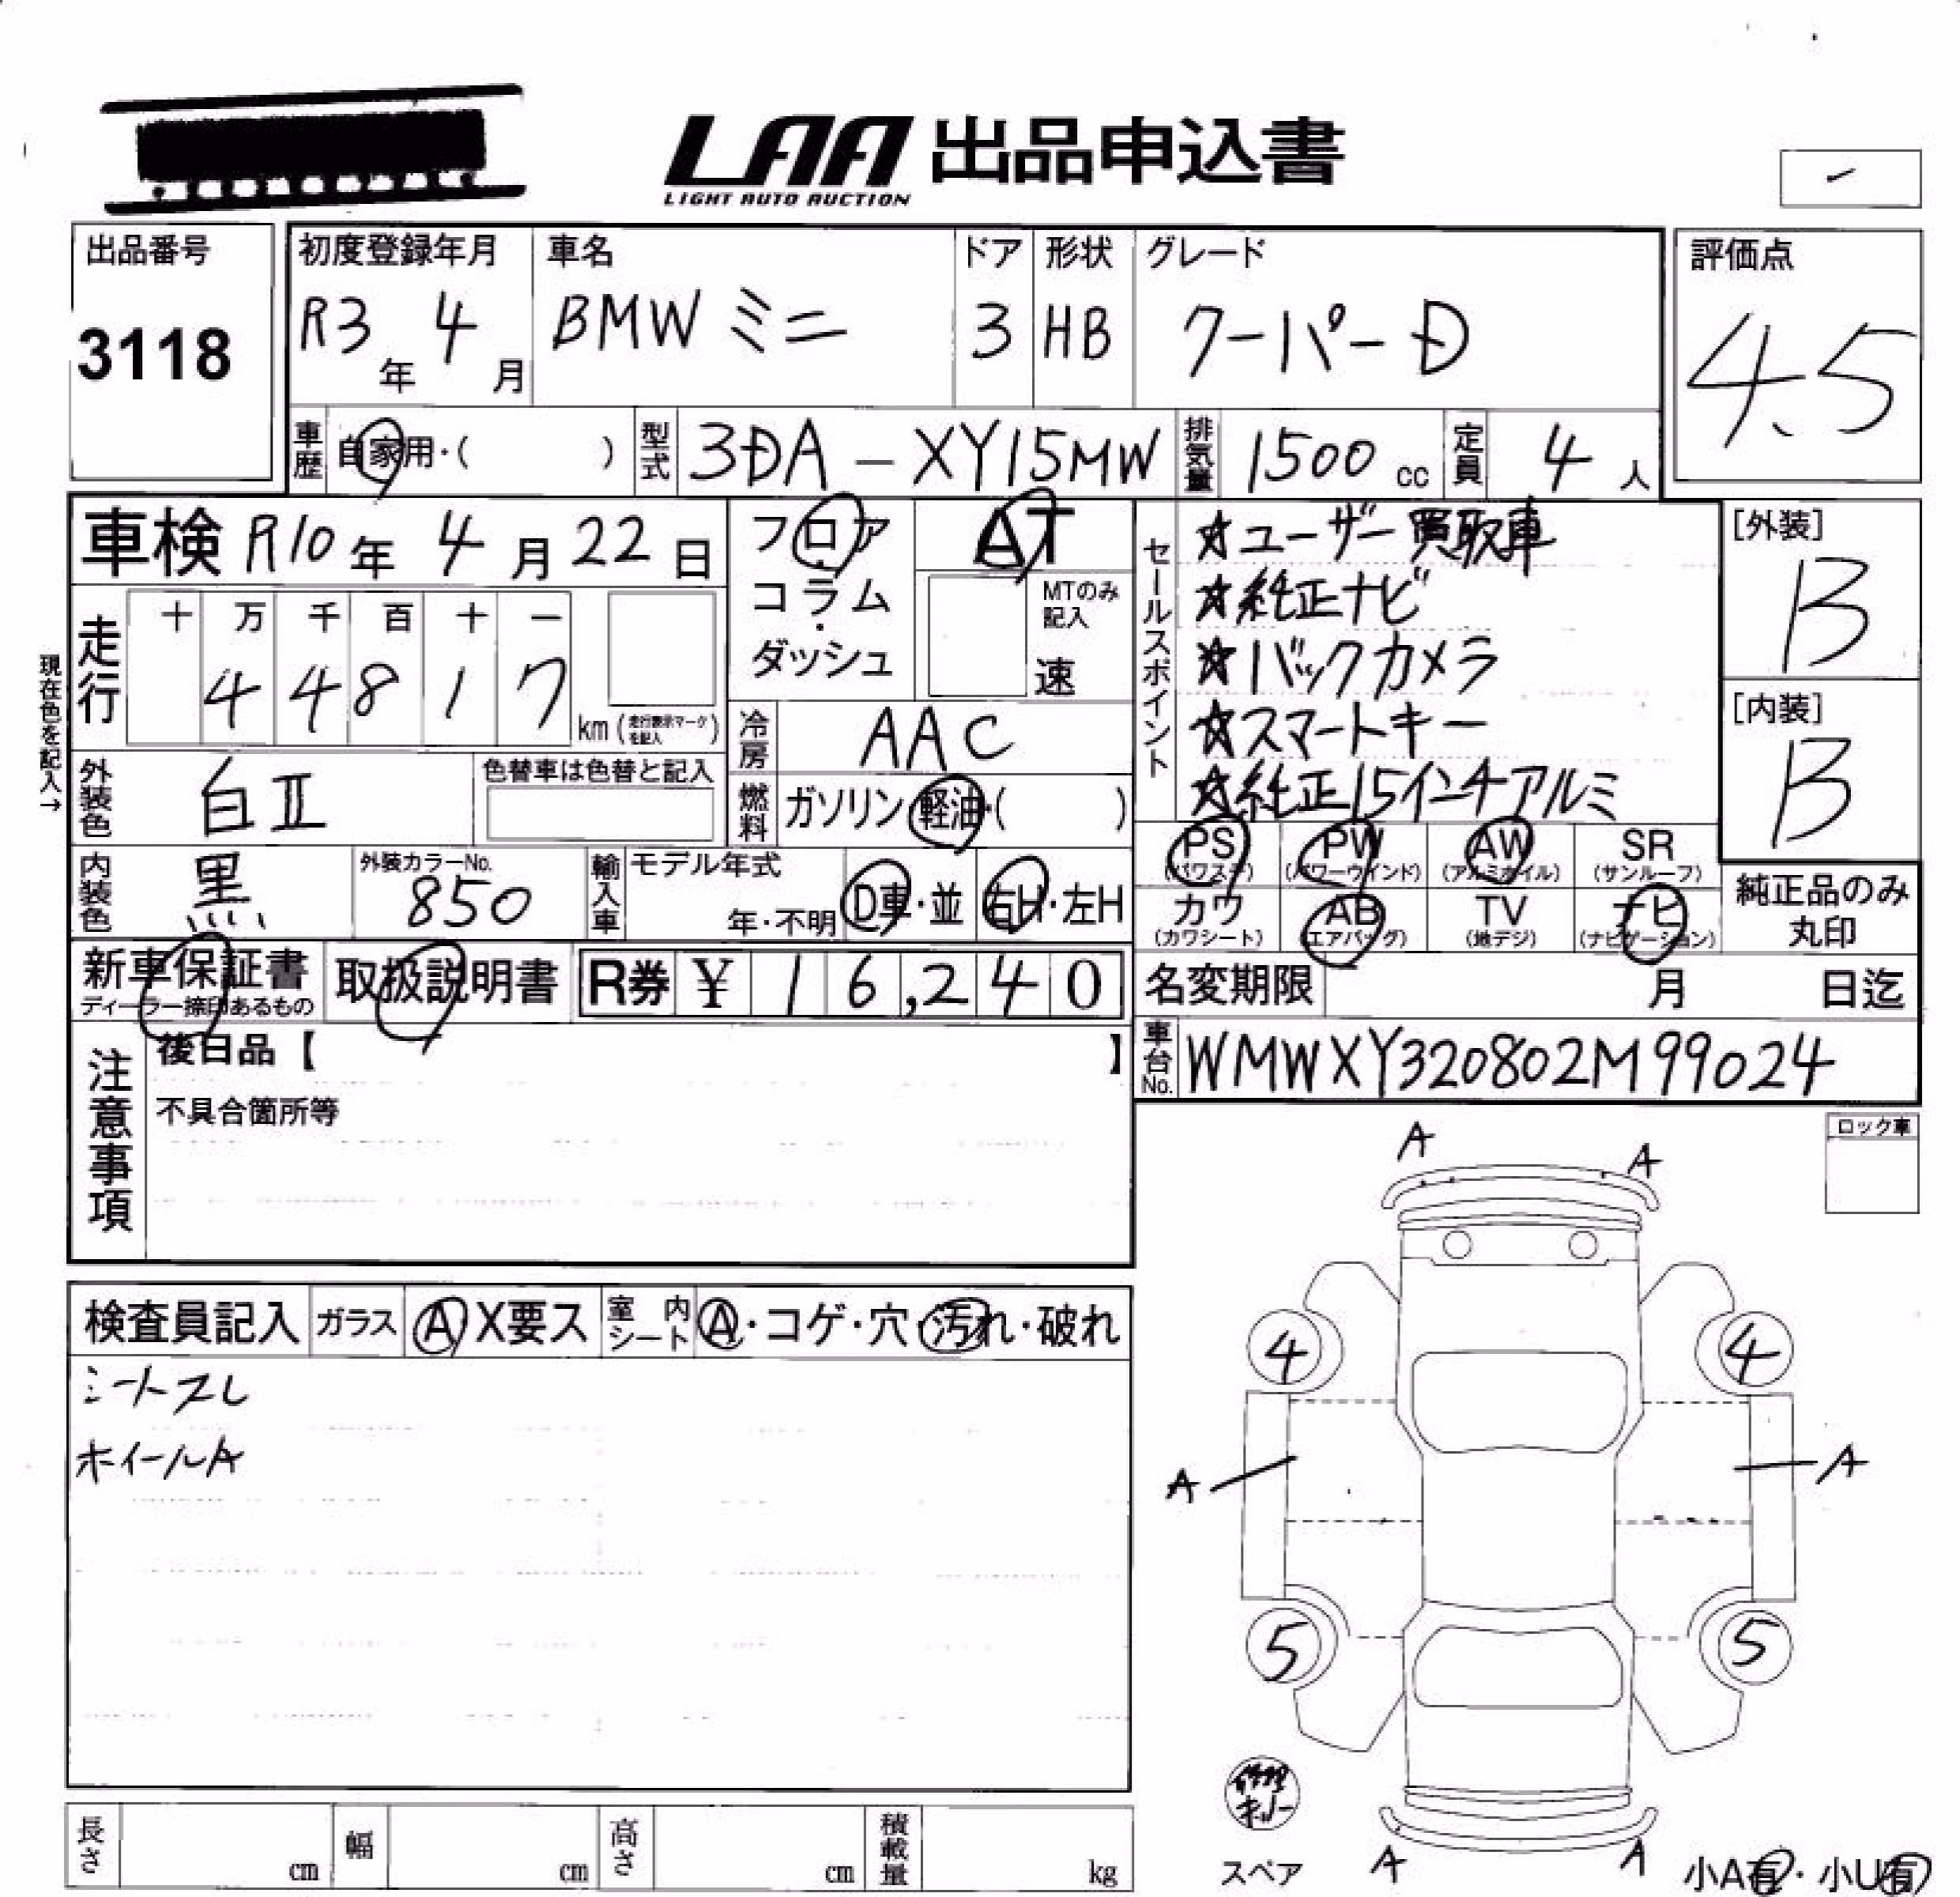 LAA 出品申込書
LIGHT AUTO AUCTION
出品番号
3118
初度登録年月
R3年 4月
車名
BMW ミニ
ドア
3
形状
HB
グレード
クーパーD
評価点
4.5
車歴 自家用・( )
型式 3DA-XY15MW
排気量 1500 cc
定員 4 人
車検 R10年 4月 22日
フロア
コラム
・
ダッシュ
AT
MTのみ
記入
速
セールスポイント
☆ユーザー買取車
☆純正ナビ
☆バックカメラ
☆スマートキー
☆純正15インチアルミ
[外装]
B
[内装]
B
現在色を記入→
走行
十 万 千 百 十 一
4 4 8 1 7
km (走行表示マークを記入)
冷房 AAC
外装色 白II
色替車は色替と記入
燃料 ガソリン・軽油・( )
内装色 黒
外装カラーNo.
850
輸入車
モデル年式
年・不明
D車・並
右H・左H
PS
(パワステ)
PW
(パワーウインド)
AW
(アルミホイル)
SR
(サンルーフ)
カワ
(カワシート)
AB
(エアバッグ)
TV
(地デジ)
ナビ
(ナビゲーション)
純正品のみ
丸印
新車保証書
ディーラー捺印あるもの
取扱説明書
R券 ¥ 16,240
名変期限 月 日迄
車台No. WMWXY320802M99024
注意事項
後日品【 】
不具合箇所等
ロック車
検査員記入
ガラス
A X要ス
室内シート
A・コゲ・穴・汚れ・破れ
シートスレ
ホイールA
A
A
4
4
A
A
5
5
修理キット
スペア
A
A
小A有・小U有
長さ cm
幅 cm
高さ cm
積載量 kg